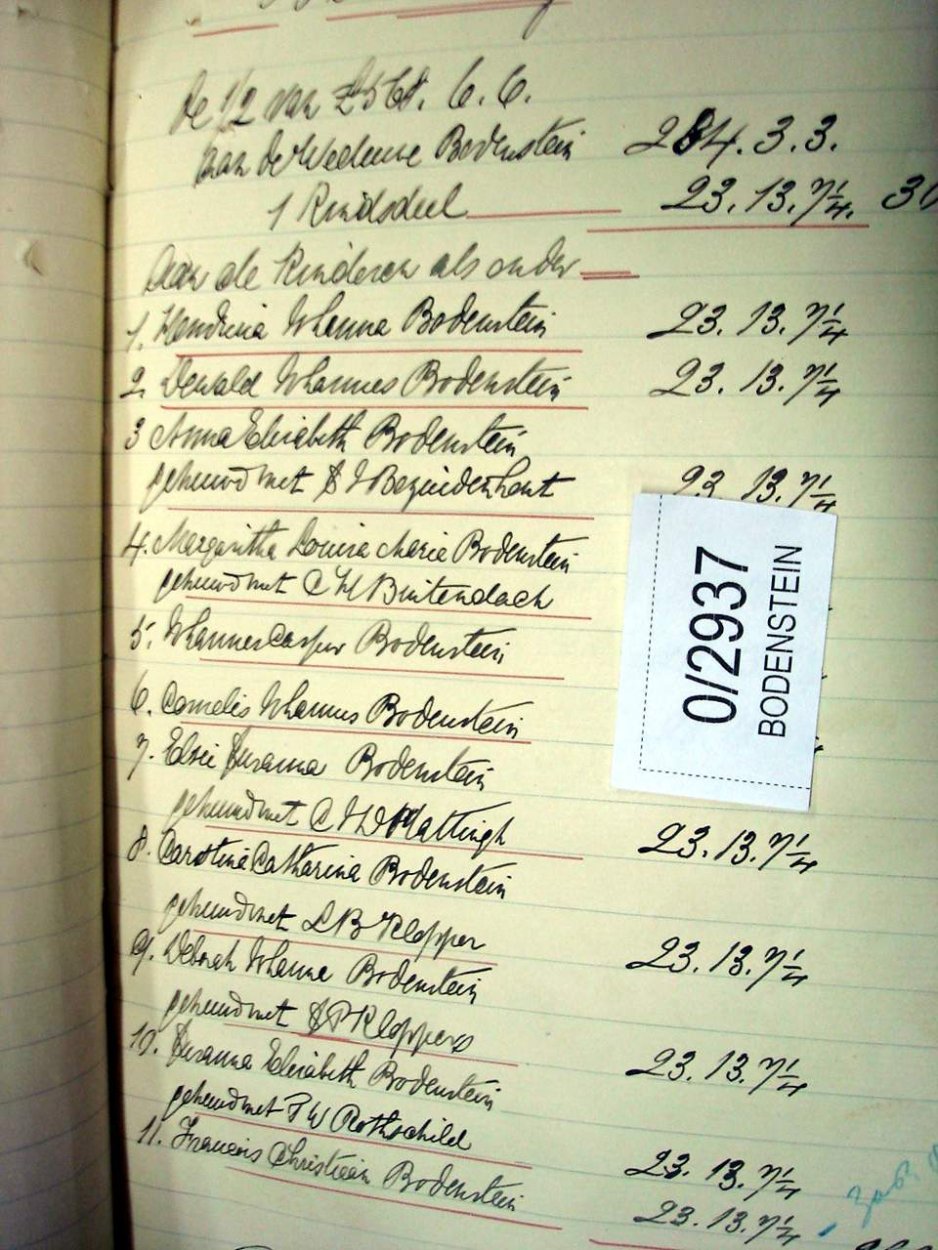 De 1/2 van £568. 6. 6.
aan de Weduwe Bodenstein 284. 3. 3.
1 Kindsdeel 23. 13. 7 1/4. 30
Aan de Kinderen als onder
1. Hendrina Johanna Bodenstein 23. 13. 7 1/4
2. Dewald Johannes Bodenstein 23. 13. 7 1/4
3 Anna Elisabeth Bodenstein
gehuwd met Bezuidenhout 23 13. 7 1/4
4. Margaritha Louisa Maria Bodenstein
gehuwd met C H Buitendach
5. Johannes Casper Bodenstein
6. Cornelis Johannes Bodenstein
7. Elsie Susanna Bodenstein
gehuwd met C J D Hattingh 23. 13. 7 1/4
8. Carolina Catharina Bodenstein
gehuwd met L B Klopper 23. 13. 7 1/4
9. Deborah Johanna Bodenstein
gehuwd met S P Kloppers 23. 13. 7 1/4
10. Susanna Elisabeth Bodenstein
gehuwd met P W Rothschild 23. 13. 7 1/4
11. Francois Christiaan Bodenstein 23. 13. 7 1/4
0/2937
BODENSTEIN